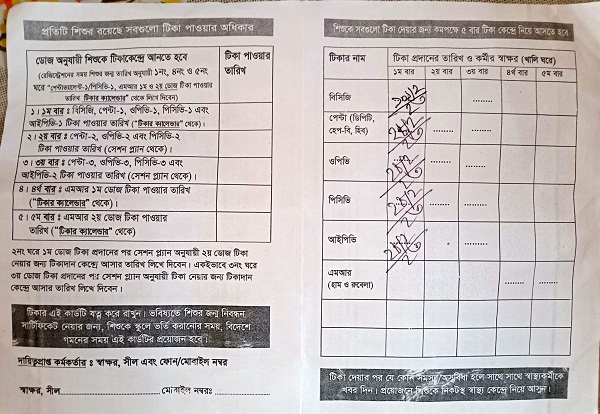 প্রতিটি শিশুর রয়েছে সবগুলো টিকা পাওয়ার অধিকার
ডোজ অনুযায়ী শিশুকে টিকাকেন্দ্রে আনতে হবে
টিকা পাওয়ার তারিখ
(রেজিস্ট্রেশনের সময় শিশুর জন্ম তারিখ অনুযায়ী ১নং, ৪নং ও ৫নং
ঘরে "পেন্টাভ্যালেন্ট-১/পিসিভি-১, এমআর ১ম ও ২য় ডোজ টিকা পাওয়ার
তারিখ টিকার ক্যালেন্ডার" থেকে লিখে দিবেন)
১। ১ম বার : বিসিজি, পেন্টা-১, ওপিভি-১, পিসিভি-১ এবং
আইপিভি-১ টিকা পাওয়ার তারিখ ("টিকার ক্যালেন্ডার" থেকে)।
২। ২য় বার : পেন্টা-২, ওপিভি-২ এবং পিসিভি-২
টিকা পাওয়ার তারিখ (সেশন প্ল্যান থেকে)।
৩। ৩য় বার : পেন্টা-৩, ওপিভি-৩, পিসিভি-৩ এবং
আইপিভি-২ টিকা পাওয়ার তারিখ (সেশন প্ল্যান থেকে)।
৪। ৪র্থ বার : এমআর ১ম ডোজ টিকা পাওয়ার তারিখ
("টিকার ক্যালেন্ডার" থেকে)।
৫। ৫ম বার : এমআর ২য় ডোজ টিকা পাওয়ার
তারিখ ("টিকার ক্যালেন্ডার" থেকে)
২নং ঘরে ১ম ডোজ টিকা প্রদানের পর সেশন প্ল্যান অনুযায়ী ২য় ডোজ টিকা
নেয়ার জন্য টিকাদান কেন্দ্রে আসার তারিখ লিখে দিবেন। একইভাবে ৩নং ঘরে
৩য় ডোজ টিকা প্রদানের পর সেশন প্ল্যান অনুযায়ী টিকা নেয়ার জন্য টিকাদান
কেন্দ্রে আসার তারিখ লিখে দিবেন।
টিকার এই কার্ডটি যত্ন করে রাখুন। ভবিষ্যতে শিশুর জন্ম নিবন্ধন
সার্টিফিকেট নেয়ার জন্য, শিশুকে স্কুলে ভর্তি করানোর সময়, বিদেশে
গমনের সময় এই কার্ডটির প্রয়োজন হবে।
দায়িত্বপ্রাপ্ত কর্মকর্তার : স্বাক্ষর, সীল এবং ফোন/মোবাইল নম্বর
স্বাক্ষর, সীল.................... মোবাইল নম্বরঃ ....................
শিশুকে সবগুলো টিকা দেয়ার জন্য কমপক্ষে ৫ বার টিকা কেন্দ্রে নিয়ে আসতে হবে
টিকার নাম
টিকা প্রদানের তারিখ ও কর্মীর স্বাক্ষর (খালি ঘরে)
১ম বার ২য় বার ৩য় বার ৪র্থ বার ৫ম বার
বিসিজি ........
পেন্টা (ডিপিটি, হেপ-বি, হিব) 28/2 ........ ........
ওপিভি 28/2 ........ ........
পিসিভি 28/2 ........ ........
আইপিভি 28/2 ........
এমআর (হাম ও রুবেলা) ........ ........
টিকা দেয়ার পর যে কোন সমস্যা/অসুবিধা হলে সাথে সাথে স্বাস্থ্যকর্মীকে
খবর দিন। প্রয়োজনে শিশুকে নিকটস্থ স্বাস্থ্য কেন্দ্রে নিয়ে আসুন।